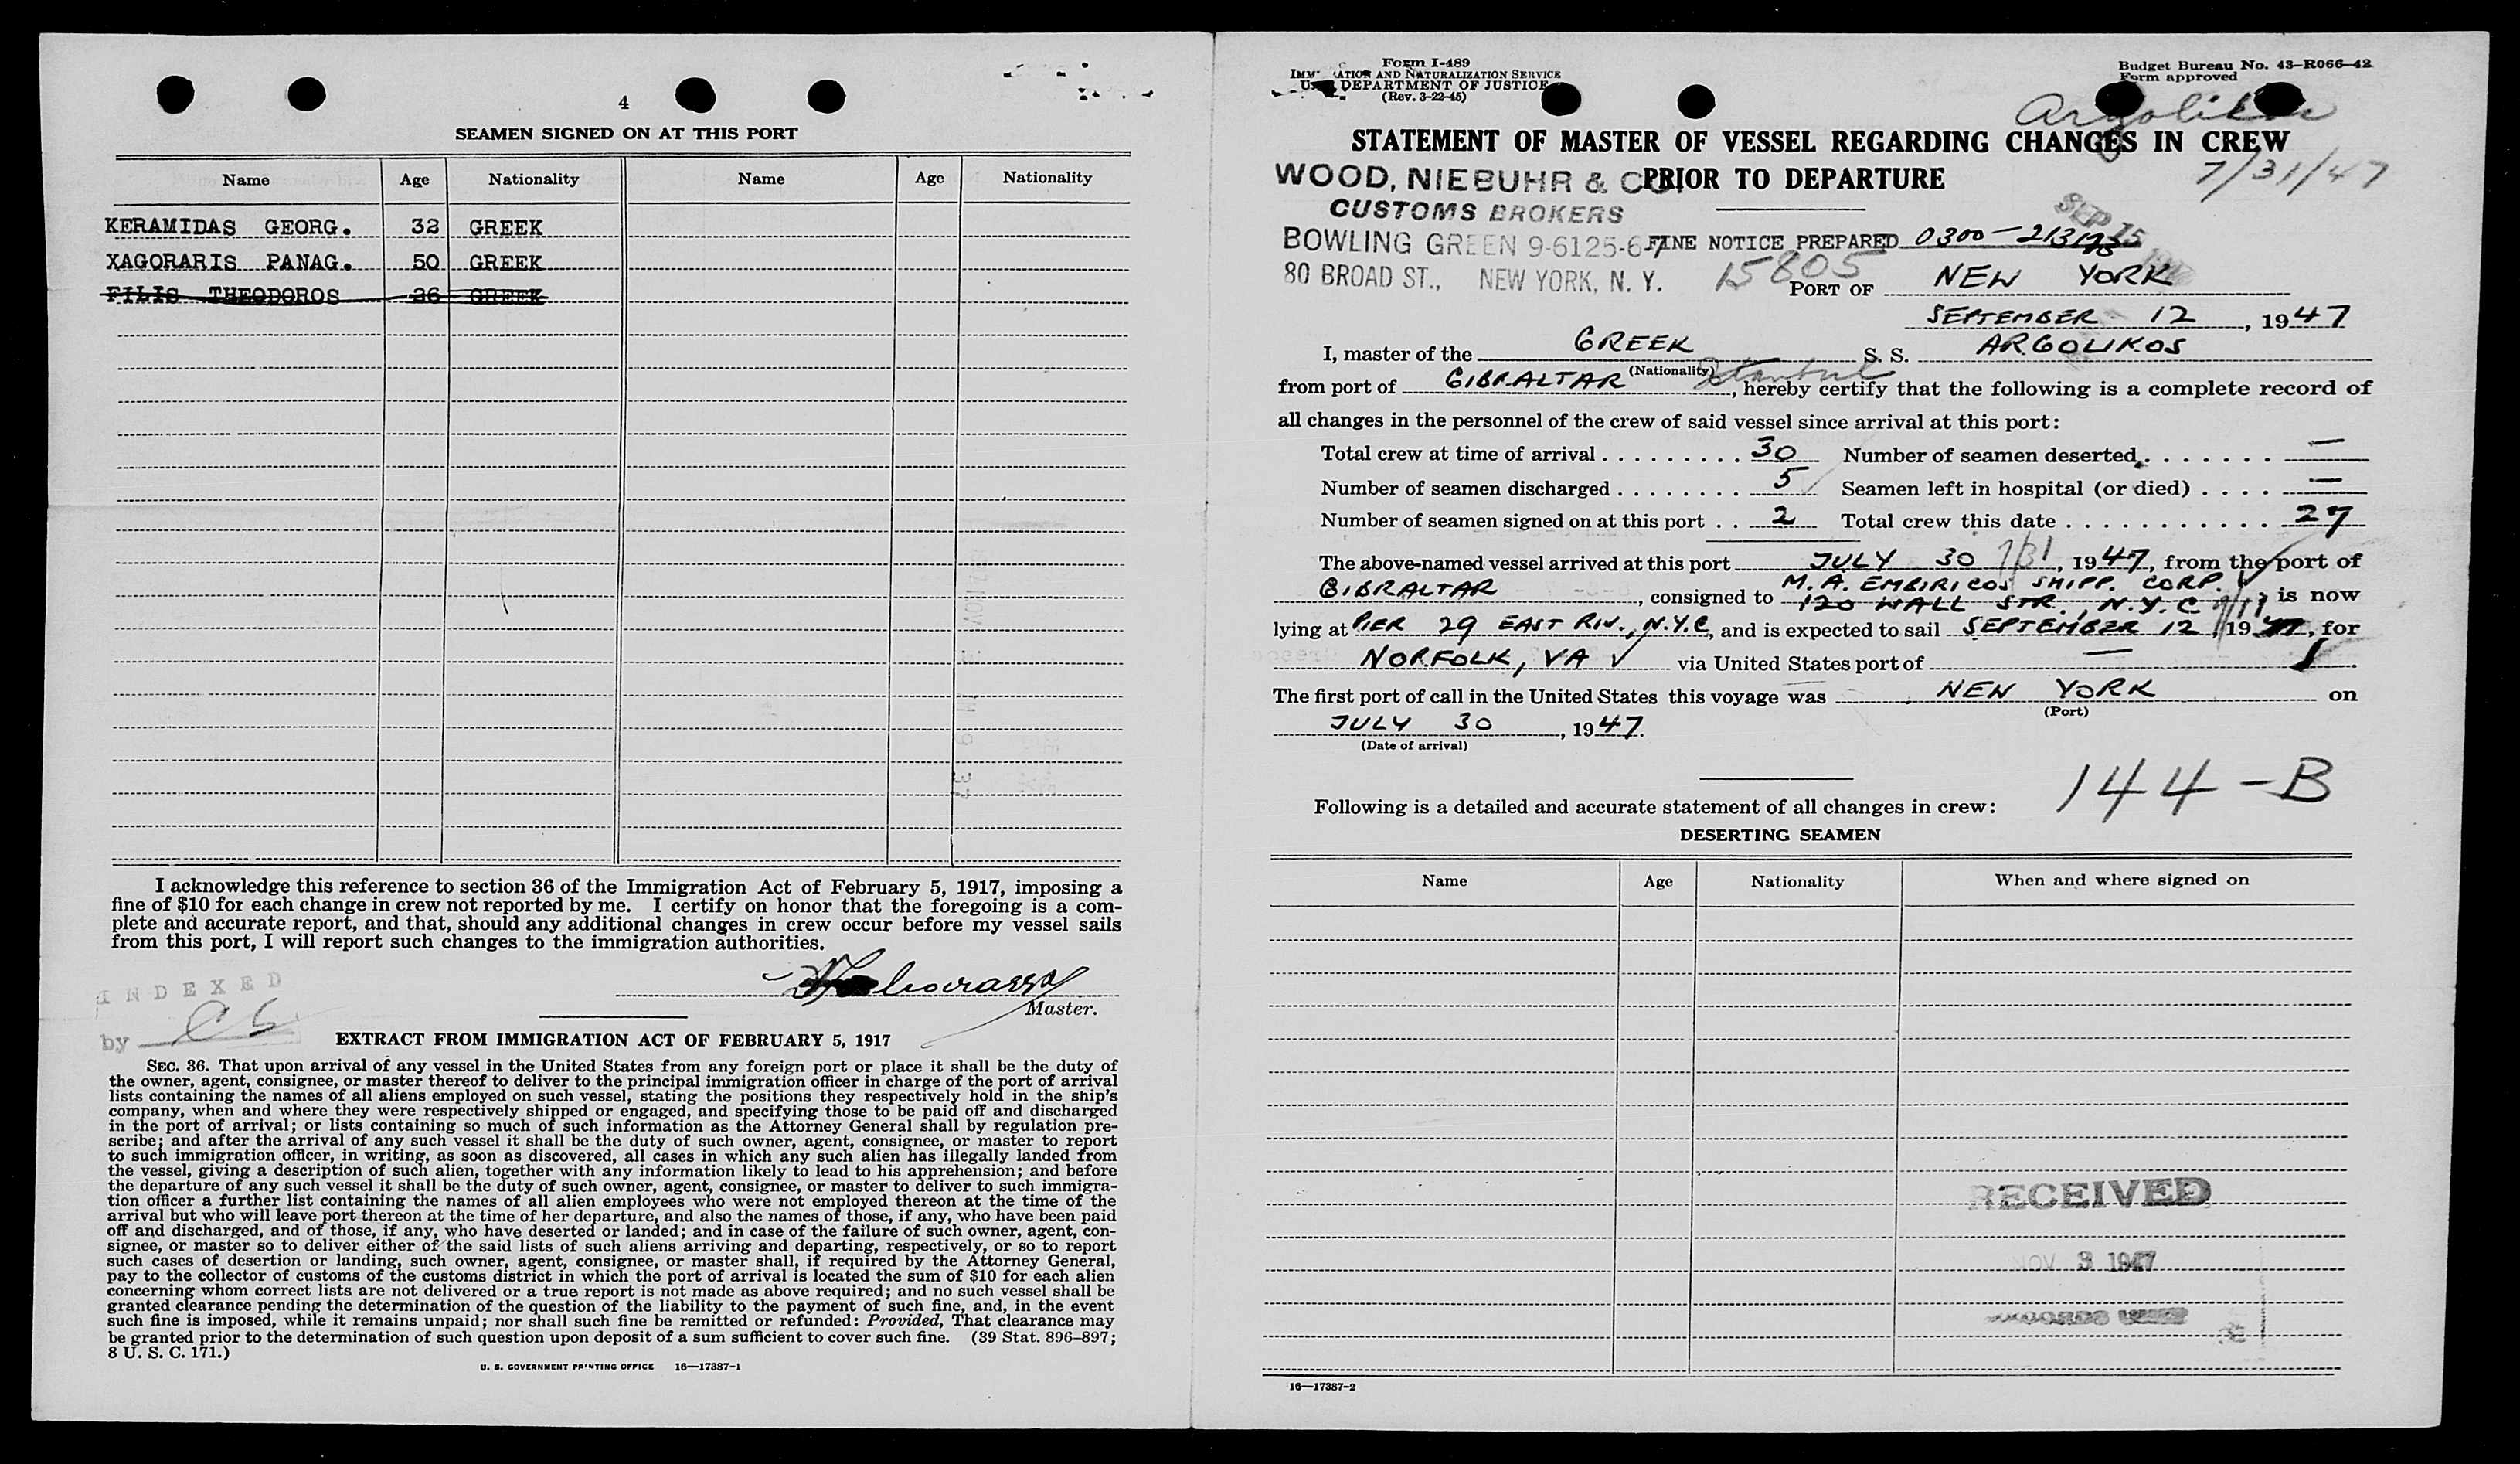 4
SEAMEN SIGNED ON AT THIS PORT
Name Age Nationality Name Age Nationality
KERAMIDAS GEORG. 32 GREEK
XAGORARIS PANAG. 50 GREEK
FILIS THEODOROS 26 GREEK
I acknowledge this reference to section 36 of the Immigration Act of February 5, 1917, imposing a
fine of $10 for each change in crew not reported by me. I certify on honor that the foregoing is a com-
plete and accurate report, and that, should any additional changes in crew occur before my vessel sails
from this port, I will report such changes to the immigration authorities.
Master.
INDEXED
by CS
EXTRACT FROM IMMIGRATION ACT OF FEBRUARY 5, 1917
SEC. 36. That upon arrival of any vessel in the United States from any foreign port or place it shall be the duty of
the owner, agent, consignee, or master thereof to deliver to the principal immigration officer in charge of the port of arrival
lists containing the names of all aliens employed on such vessel, stating the positions they respectively hold in the ship's
company, when and where they were respectively shipped or engaged, and specifying those to be paid off and discharged
in the port of arrival; or lists containing so much of such information as the Attorney General shall by regulation pre-
scribe; and after the arrival of any such vessel it shall be the duty of such owner, agent, consignee, or master to report
to such immigration officer, in writing, as soon as discovered, all cases in which any such alien has illegally landed from
the vessel, giving a description of such alien, together with any information likely to lead to his apprehension; and before
the departure of any such vessel it shall be the duty of such owner, agent, consignee, or master to deliver to such immigra-
tion officer a further list containing the names of all alien employees who were not employed thereon at the time of the
arrival but who will leave port thereon at the time of her departure, and also the names of those, if any, who have been paid
off and discharged, and of those, if any, who have deserted or landed; and in case of the failure of such owner, agent, con-
signee, or master so to deliver either of the said lists of such aliens arriving and departing, respectively, or so to report
such cases of desertion or landing, such owner, agent, consignee, or master shall, if required by the Attorney General,
pay to the collector of customs of the customs district in which the port of arrival is located the sum of $10 for each alien
concerning whom correct lists are not delivered or a true report is not made as above required; and no such vessel shall be
granted clearance pending the determination of the question of the liability to the payment of such fine, and, in the event
such fine is imposed, while it remains unpaid; nor shall such fine be remitted or refunded: Provided, That clearance may
be granted prior to the determination of such question upon deposit of a sum sufficient to cover such fine. (39 Stat. 896–897;
8 U. S. C. 171.)
U. S. GOVERNMENT PRINTING OFFICE 16—17387-1
Form I-489
IMMIGRATION AND NATURALIZATION SERVICE
U. S. DEPARTMENT OF JUSTICE
(Rev. 3-22-45)
Budget Bureau No. 43-R066-42
Form approved
Argolikos
7/31/47
STATEMENT OF MASTER OF VESSEL REGARDING CHANGES IN CREW
PRIOR TO DEPARTURE
WOOD, NIEBUHR & CO.
CUSTOMS BROKERS
BOWLING GREEN 9-6125-6-7
80 BROAD ST., NEW YORK, N. Y.
SEP 15
FINE NOTICE PREPARED 0300-
15805
PORT OF NEW YORK
SEPTEMBER 12, 1947
I, master of the GREEK S. S. ARGOLIKOS
(Nationality)
from port of GIBRALTAR Istanbul, hereby certify that the following is a complete record of
all changes in the personnel of the crew of said vessel since arrival at this port:
Total crew at time of arrival . . . . . . . . . 30 Number of seamen deserted . . . . . . . —
Number of seamen discharged . . . . . . . . 5 Seamen left in hospital (or died) . . . . —
Number of seamen signed on at this port . . 2 Total crew this date . . . . . . . . . . . . 27
The above-named vessel arrived at this port JULY 30 7/31, 1947, from the port of
GIBRALTAR, consigned to M. A. EMBIRICOS SHIPP. CORP. 120 WALL STR., N.Y.C, is now
lying at PIER 29 EAST RIV., N.Y.C, and is expected to sail SEPTEMBER 12, 1947, for
NORFOLK, VA via United States port of —
The first port of call in the United States this voyage was NEW YORK on
(Port)
JULY 30, 1947.
(Date of arrival)
144-B
Following is a detailed and accurate statement of all changes in crew:
DESERTING SEAMEN
Name Age Nationality When and where signed on
RECEIVED
NOV 3 1947
16—17387-2